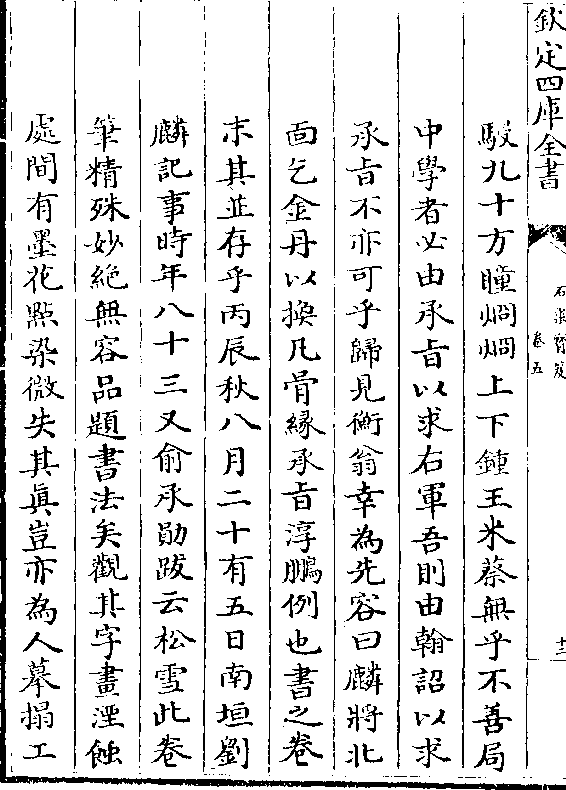 欽定四庫全書
石渠寶笈
卷五
十三
駸九十方瞳烱烱上下鍾王米蔡無乎不善局
中學者必由承旨以求右軍吾則由翰詔以求
承旨不亦可乎歸見衡翁幸為先容曰麟將北
面乞金丹以換凡骨緣承旨淳鵬例也書之卷
末其並存乎丙辰秋八月二十有五日南垣劉
麟記事時年八十三又俞承勛跋云松雪此卷
筆精殊妙絕無容品題書法矣觀其字畫湮蝕
處間有墨花點染微失其真豈亦為人摹搨工